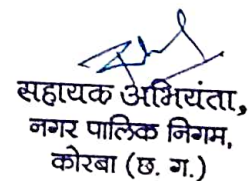 सहायक अभियंता,
नगर पालिक निगम,
कोरबा (छ. ग.)